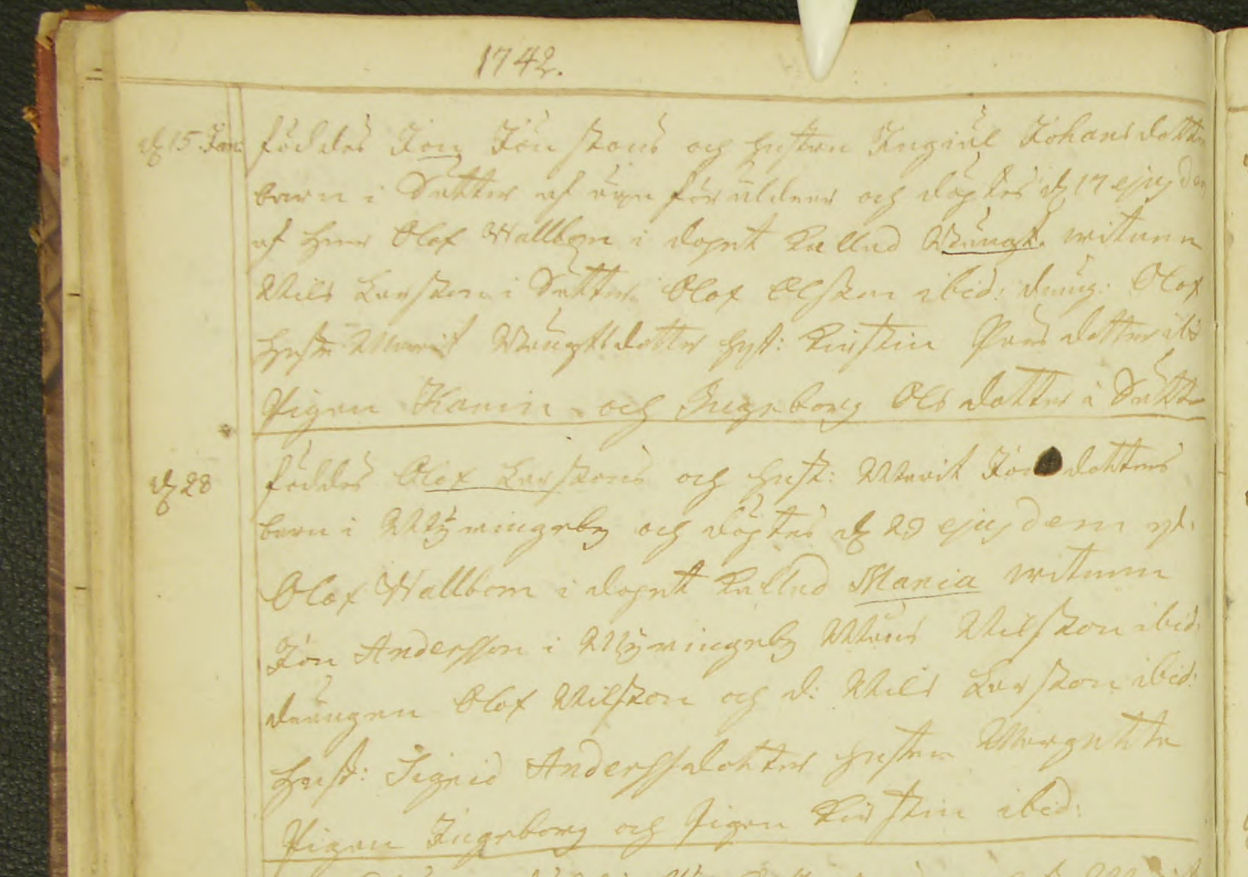 1742.
d 15 Jan: föddes Jon Jön ssons och hustru Ingiäl Johans dotter
barn i Sätter af äga föräldrar och döptes d 17 ejusdem
af Herr Olof Wallbom i dopet kallad Bängt. witnen
Nils Larsson i Sätter Olof Olsson ibid: dräng: Olof
Hustr Marit Bängtsdotter hust: Kirstin Pärs dotter ibi
Pigan Karin och Ingeborg Ols dotter i Sätter
d 28 föddes Olof Larssons och Hust: Marit Jons dotters
barn i Myringeby och döptes d 29 ejusdem af.
Olof Wallbom i dopet kallad Maria witnen
Jon Andersson i Myringeby Måns Nilsson ibid
drängen Olof Nilsson och d: Nils Larsson ibid:
Hust: Sigrid Anderssdotter hustru Margretta
Pigan Ingeborg och pigan Kirstin ibid: